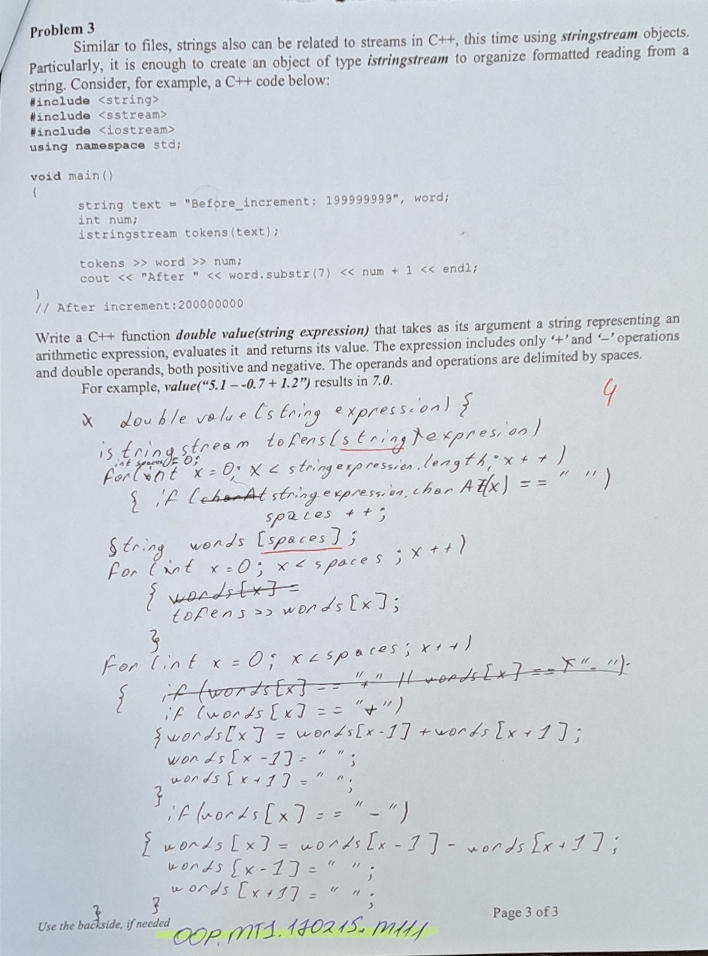 Problem 3
Similar to files, strings also can be related to streams in C++, this time using stringstream objects.
Particularly, it is enough to create an object of type istringstream to organize formatted reading from a
string. Consider, for example, a C++ code below:
#include <string>
#include <sstream>
#include <iostream>
using namespace std;
void main()
{
string text = "Before_increment: 199999999", word;
int num;
istringstream tokens(text);
tokens >> word >> num;
cout << "After " << word.substr(7) << num + 1 << endl;
}
// After increment:200000000
Write a C++ function double value(string expression) that takes as its argument a string representing an
arithmetic expression, evaluates it and returns its value. The expression includes only ‘+’ and ‘–’ operations
and double operands, both positive and negative. The operands and operations are delimited by spaces.
For example, value(“5.1 – -0.7 + 1.2”) results in 7.0.
4
x double value (string expression) {
istringstream tokens(string expresion)
int spaces = 0;
for (int x = 0; x < string expression.length; x++)
{ if (charAt string expression.charAt(x) == " ")
spaces ++;
String words [spaces];
for (int x = 0; x < spaces; x++)
{ words[x] =
tokens >> words[x];
}
for (int x = 0; x < spaces; x++)
{ if (words[x] == "+" || words[x] == "-")
if (words[x] == "+")
{ words[x] = words[x-1] + words[x+1];
words[x-1] = " ";
words[x+1] = " ";
}
if (words[x] == "-")
{ words[x] = words[x-1] - words[x+1];
words[x-1] = " ";
words[x+1] = " ";
} }
Use the backside, if needed
OOP.MT1.170215.M111
Page 3 of 3